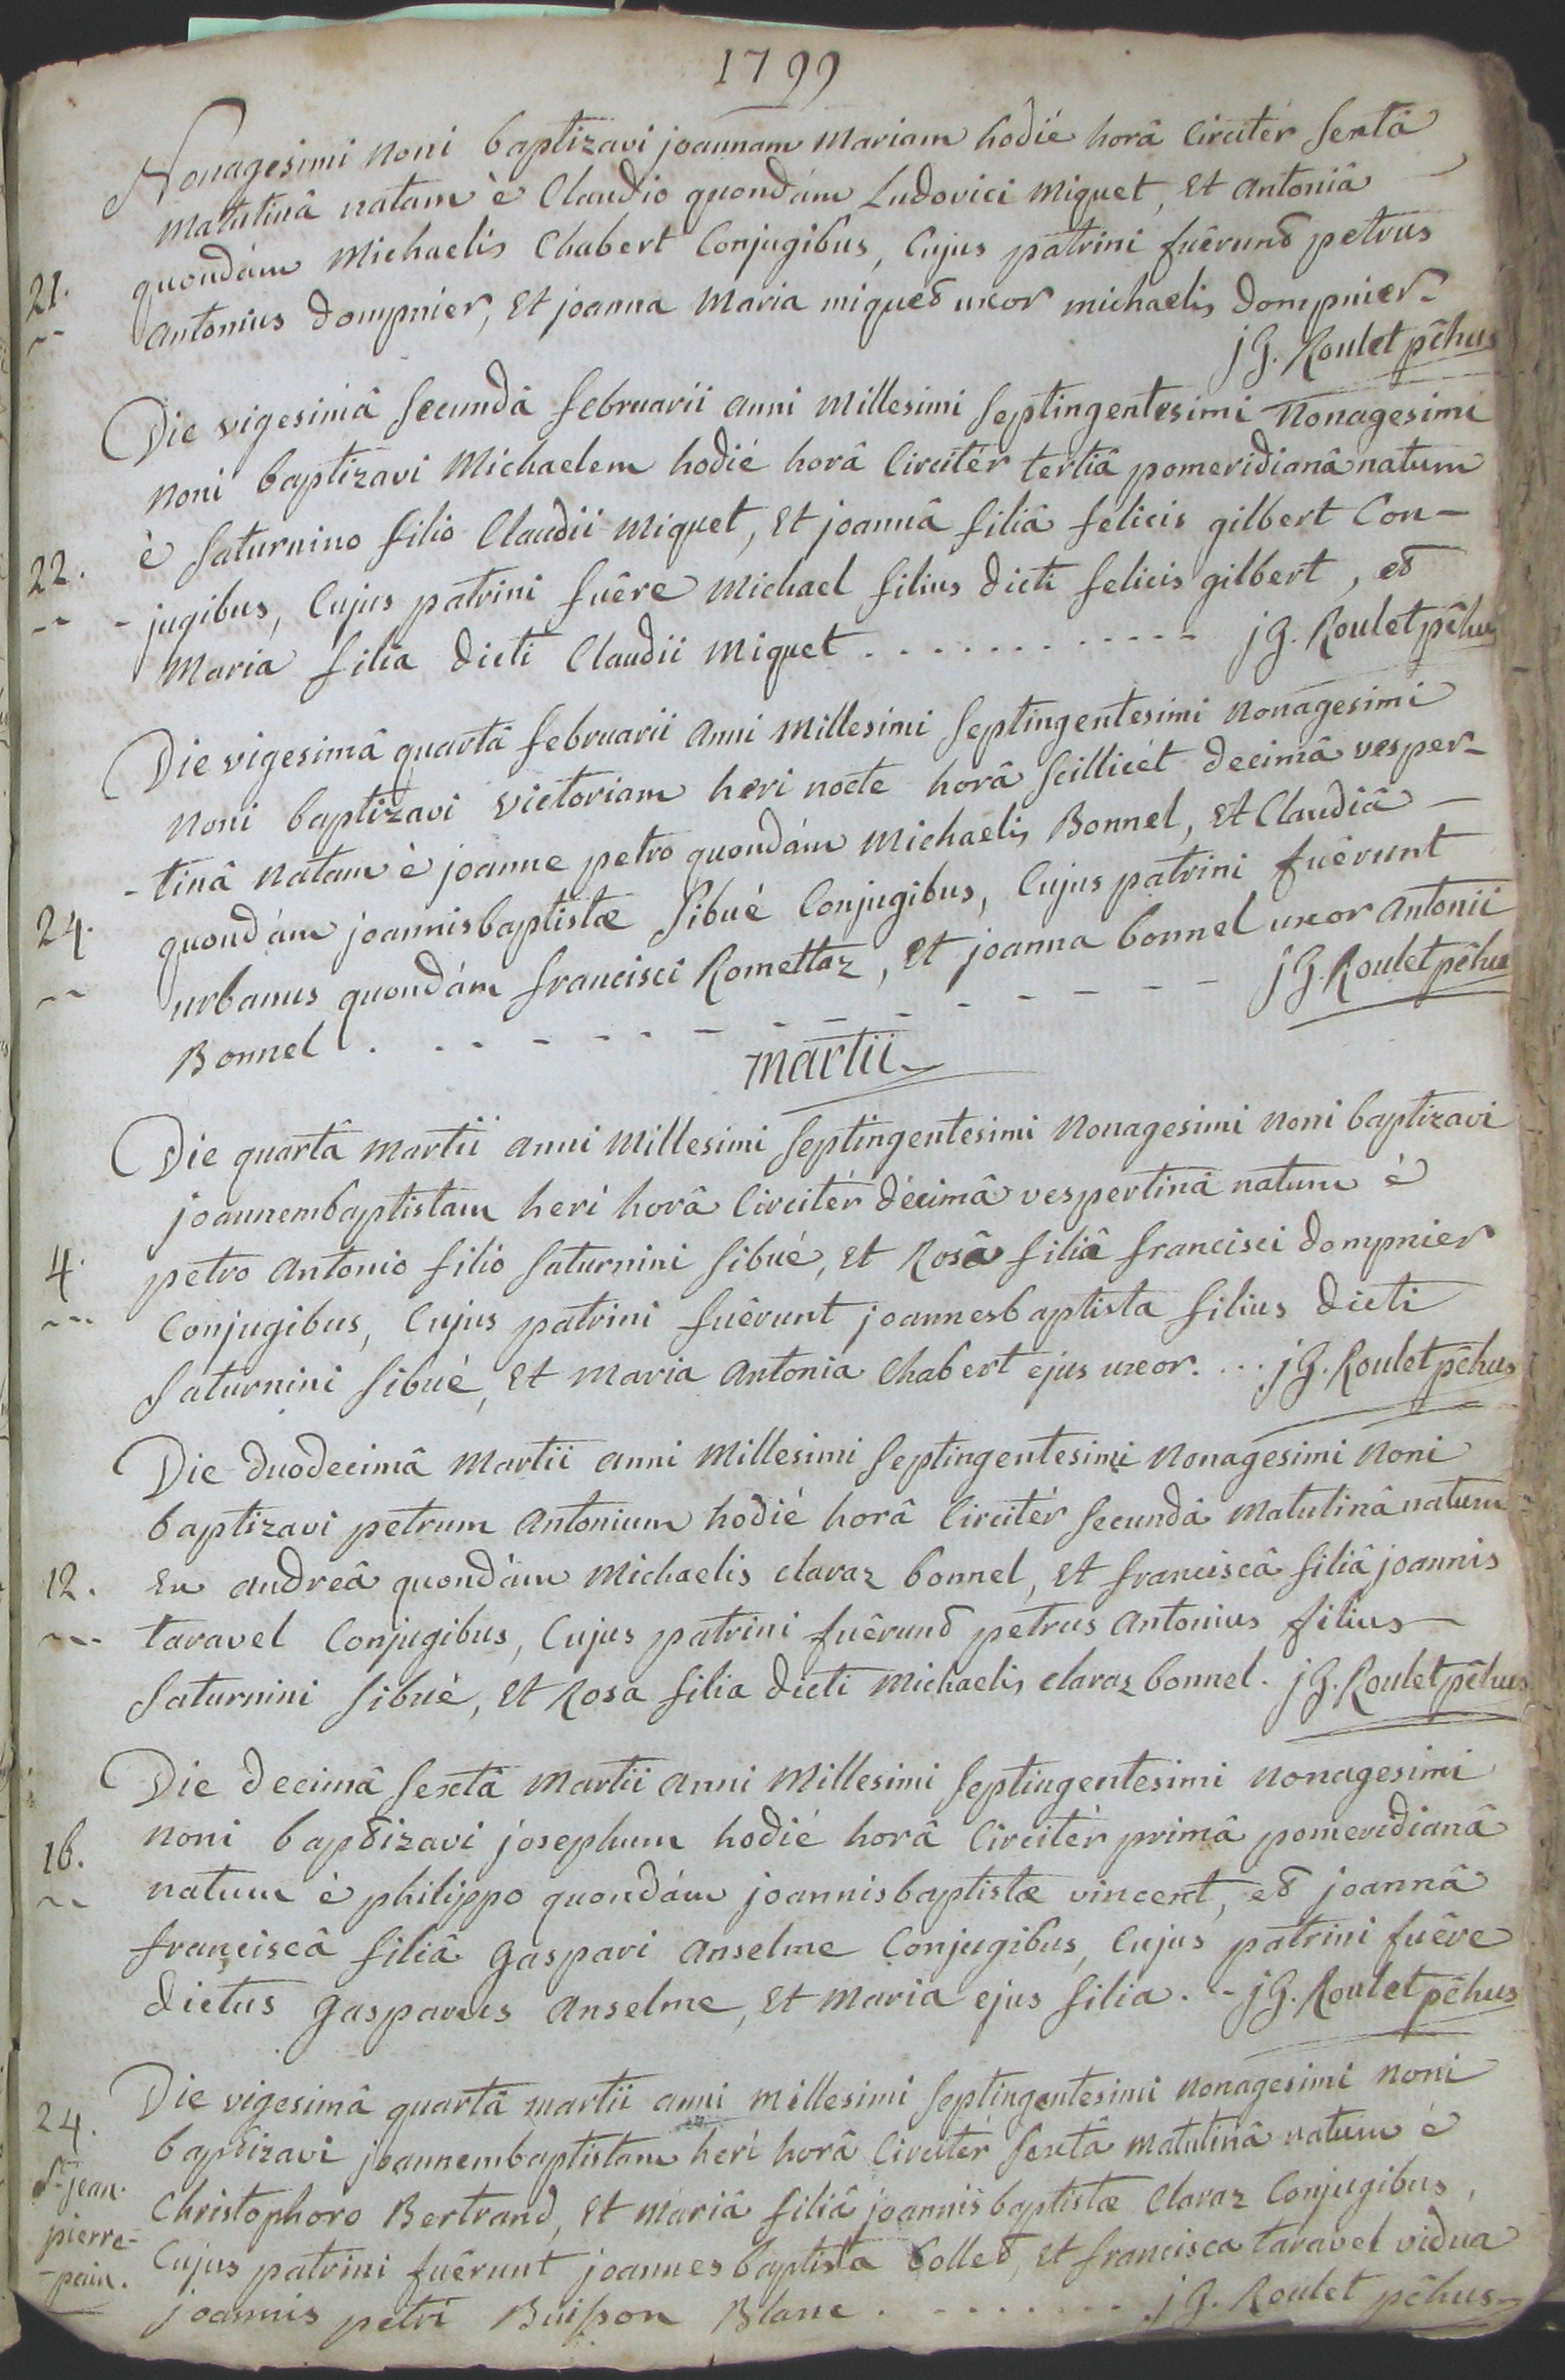 1799
Nonagesimi noni baptizavi joannam Mariam hodié horâ Circitér Sextâ
Matutinâ natam è Claudio quondám Ludovici Miquet, Et Antoniâ
quondám Michaelis Chabert Conjugibus, Cujus patrini fuêrunt petrus
21. Antonius dompnier, Et joanna Maria miquet uxor michaelis dompnier.
jG. Roulet pêhus
Die vigesimâ Secundâ februarii anni Millesimi Septingentesimi Nonagesimi
noni baptizavi Michaelem hodié horâ Circitér tertiâ pomeridianâ natum
è Saturnino filio Claudii Miquet, Et joannâ filiâ felicis gilbert Con-
22. -jugibus, Cujus patrini fuêre Michael filius dicti felicis gilbert, et
Maria filia dicti Claudii Miquet . . . . . . . . . . . . jG. Roulet pêhus
Die vigesimâ quartâ februarii anni Millesimi Septingentesimi Nonagesimi
Noni baptizavi victoriam heri nocte horâ Scillicét decimâ vesper-
-tinâ Natam è joanne petro quondám Michaelis Bonnel, Et Claudiâ
24. quondám joannisbaptistæ Sibué Conjugibus, Cujus patrini fuêrunt
urbanus quondám francisci Romettaz, Et joanna bonnel uxor Antonii
Bonnel . - - - - - - - - - - - - jG. Roulet pêhus
Martii
Die quartâ Martii anni Millesimi Septingentesimi Nonagesimi Noni baptizavi
joannembaptistam heri horâ Circitér décimâ vespertinâ natum è
4. petro Antonio filio Saturnini Sibué, Et Rosâ filiâ francisci dompnier
Conjugibus, Cujus patrini fuêrunt joannesbaptista filius dicti
Saturnini Sibué, Et Maria Antonia Chabert ejus uxor. . . . jG. Roulet pêhus
Die duodecimâ Martii anni Millesimi Septingentesimi Nonagesimi Noni
baptizavi petrum Antonium hodié horâ Circitér Secundâ Matutinâ natum
12. Ex andreâ quondám Michaelis claraz bonnel, Et franciscâ filiâ joannis
taravel Conjugibus, Cujus patrini fuêrunt petrus Antonius filius
Saturnini Sibué, Et Rosa filia dicti Michaelis claraz bonnel. jG. Roulet pêhus
Die decimâ Sextâ Martii anni Millesimi Septingentesimi Nonagesimi
16. noni baptizavi josephum hodié horâ Circitér primâ pomeridianâ
natum è philippo quondám joannisbaptistæ vincent, et joannâ
franciscâ filiâ gaspari Anselme Conjugibus, Cujus patrini fuêre
dictus gasparus Anselme, Et Maria ejus filia. - - jG. Roulet pêhus
24. Die vigesimâ quartâ Martii anni Millesimi Septingentesimi Nonagesimi Noni
baptizavi joannembaptistam heri horâ Circitér Sextâ Matutinâ natum é
St jean. Christophoro Bertrand, Et Mariâ filiâ joannis baptistæ Claraz Conjugibus,
pierre- Cujus patrini fuêrunt joannes baptista Collet, Et francisca taravel vidua
-pain. joannis petri Buisson Blanc . - - - - - - - jG. Roulet pêhus